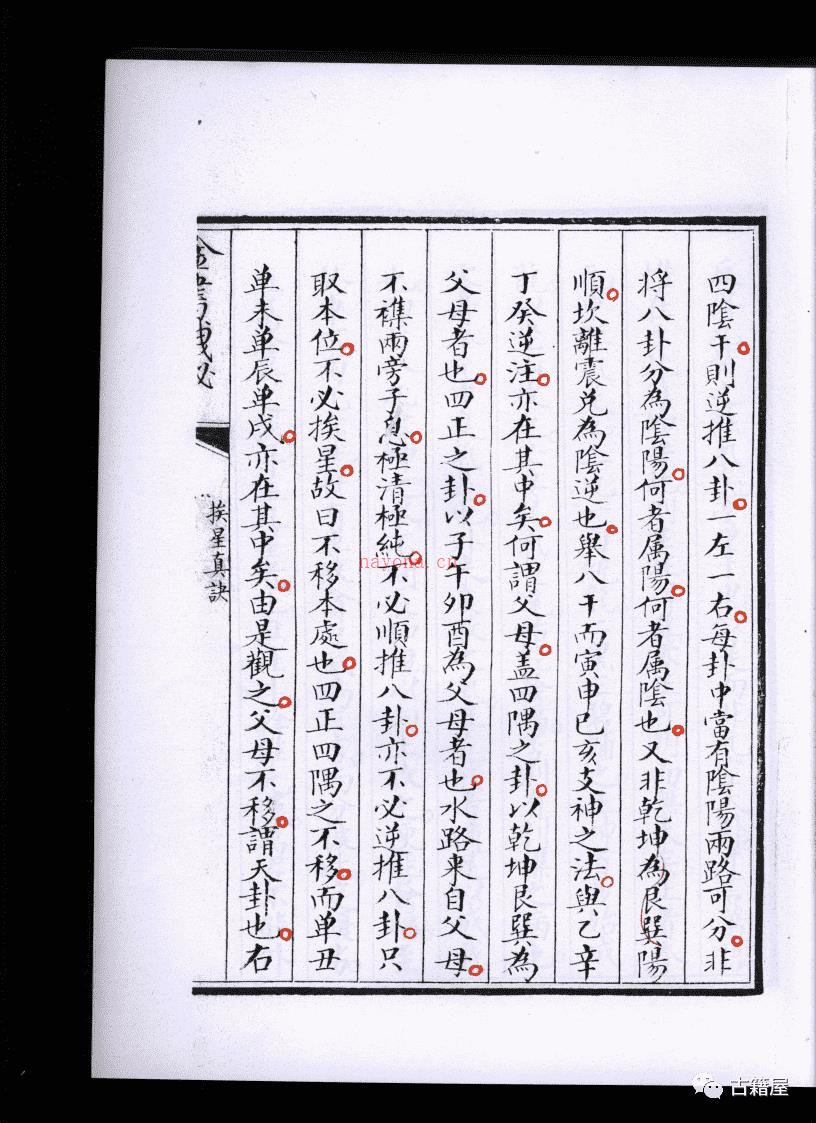 四陰干則逆推八卦一左一右每卦中當有陰陽兩路可分非
將八卦分為陰陽何者属陽何者属陰也又非乾坤為艮巽陽
順坎離震兌為陰逆也舉八干而寅申巳亥支神之法與乙辛
丁癸逆注亦在其中矣何謂父母盖四隅之卦以乾坤艮巽為
父母者也四正之卦以子午卯酉為父母者也水路来自父母
不襍兩旁子息極清極純不必順推八卦亦不必逆推八卦只
取本位不必挨星故曰不移本處也四正四隅之不移而单丑
单未单辰单戌亦在其中矣由是觀之父母不移謂天卦也右
挨星真訣
nayona.cn
古籍屋